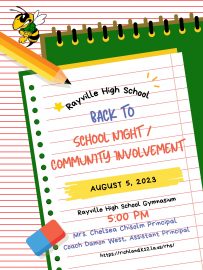 Rayville High School
BACK TO
SCHOOL NIGHT /
COMMUNITY INVOLVEMENT
AUGUST 5, 2023
Rayville High School Gymnasium
5:00 PM
Mrs. Chelsea Chisolm Principal
Coach Damon West, Assistant Principal
https://richland.k12.la.us/rhs/